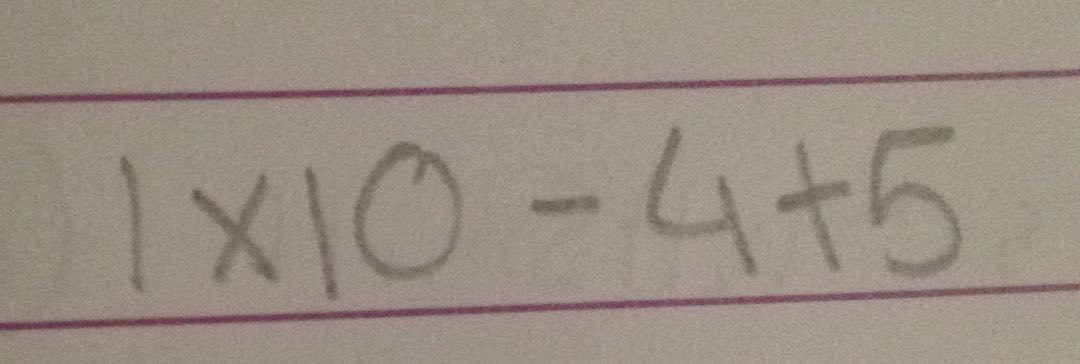 1 x 10 - 4 + 5